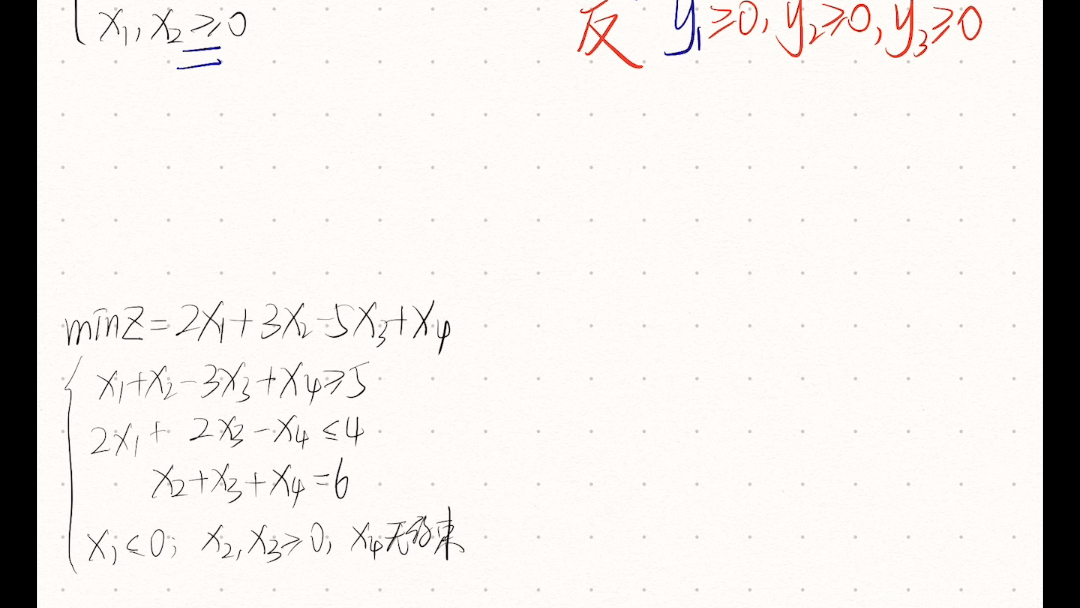 x₁,x₂≥0
反 y₁≥0,y₂≥0,y₃≥0
minZ=2x₁+3x₂-5x₃+x₄
x₁+x₂-3x₃+x₄≥5
2x₁+2x₃-x₄≤4
x₂+x₃+x₄=6
x₁≤0; x₂,x₃≥0, x₄无约束